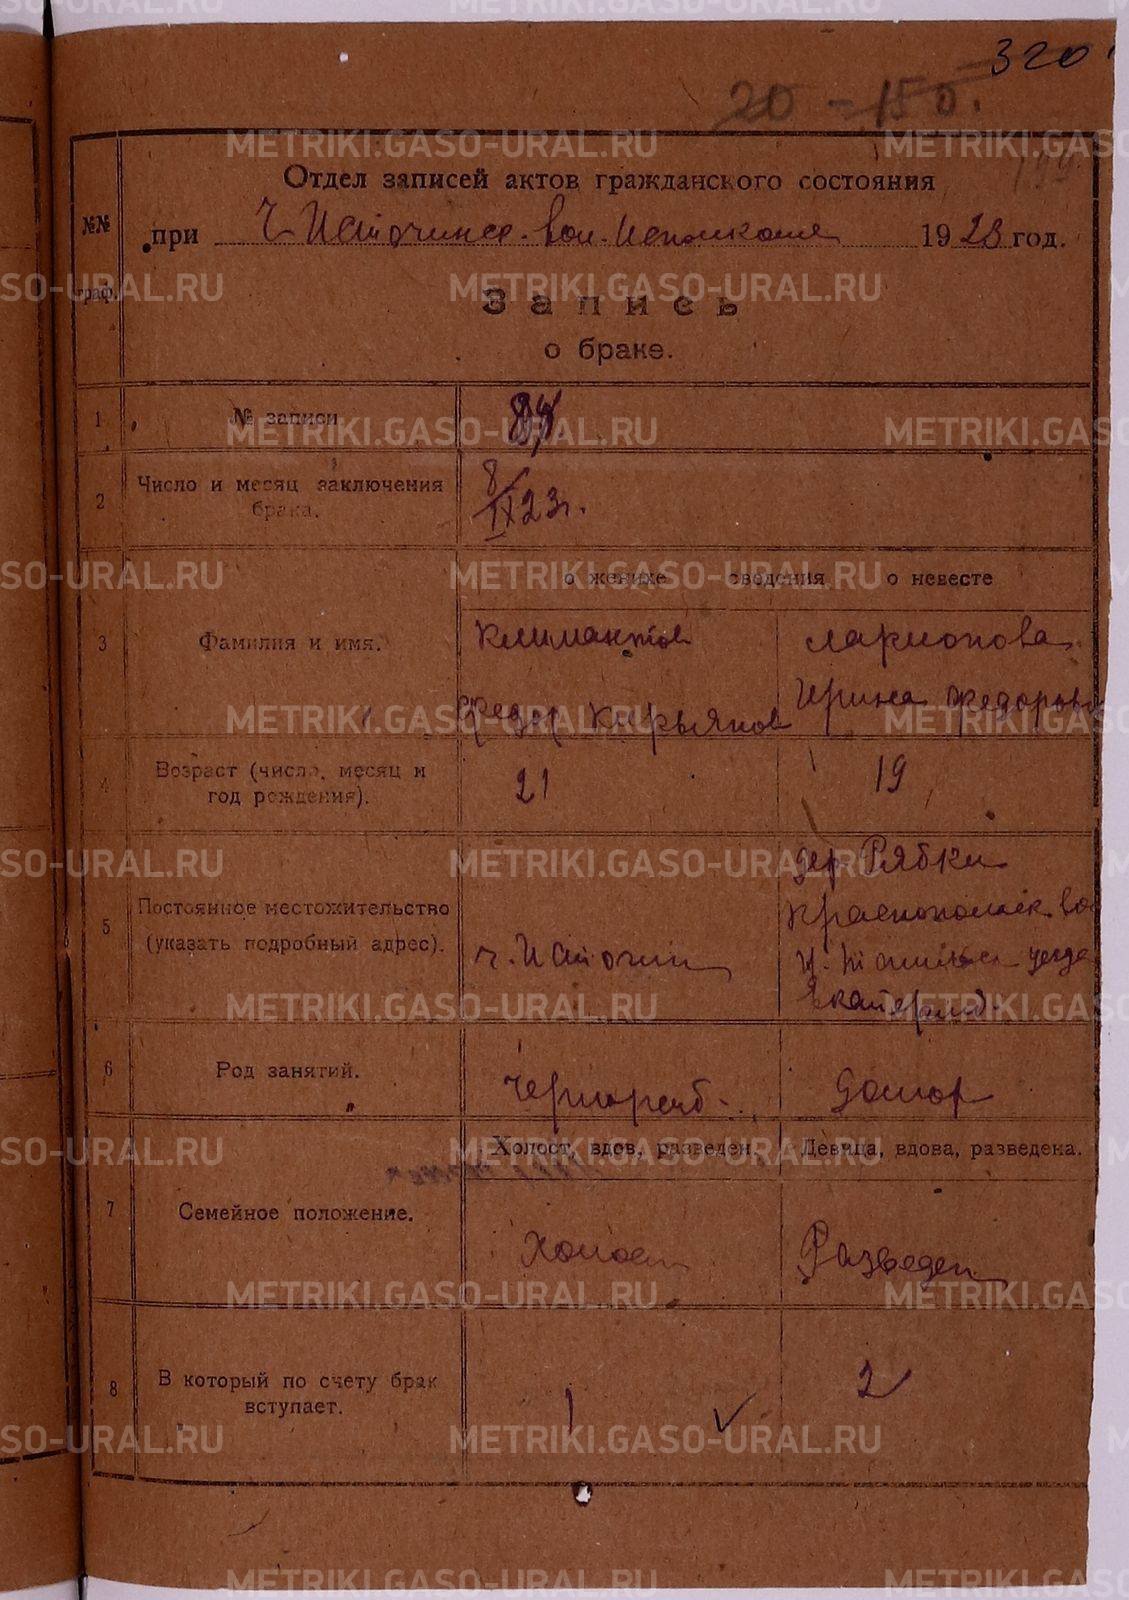 320
20 - 150.
199
Отдел записей актов гражданского состояния
№№ граф.
при Ч Источинск. вол. Исполкоме 1923 год.
Запись
о браке.
1 № записи 84
2 Число и месяц заключения брака. 8/IX 23 г.
о женихе сведения о невесте
3 Фамилия и имя. Климантов Ларионова
Федор Кирьянов Ирина Федоров
4 Возраст (число, месяц и год рождения). 21 19
5 Постоянное местожительство (указать подробный адрес). ч. Источин дер. Рябки
Краснополяк. во
уезда
Екатеринб.
6 Род занятий. Чернораб. Домор
Холост, вдов, разведен. Девица, вдова, разведена.
7 Семейное положение. Холост Разведен
8 В который по счету брак вступает. 1 2
METRIKI.GASO-URAL.RU